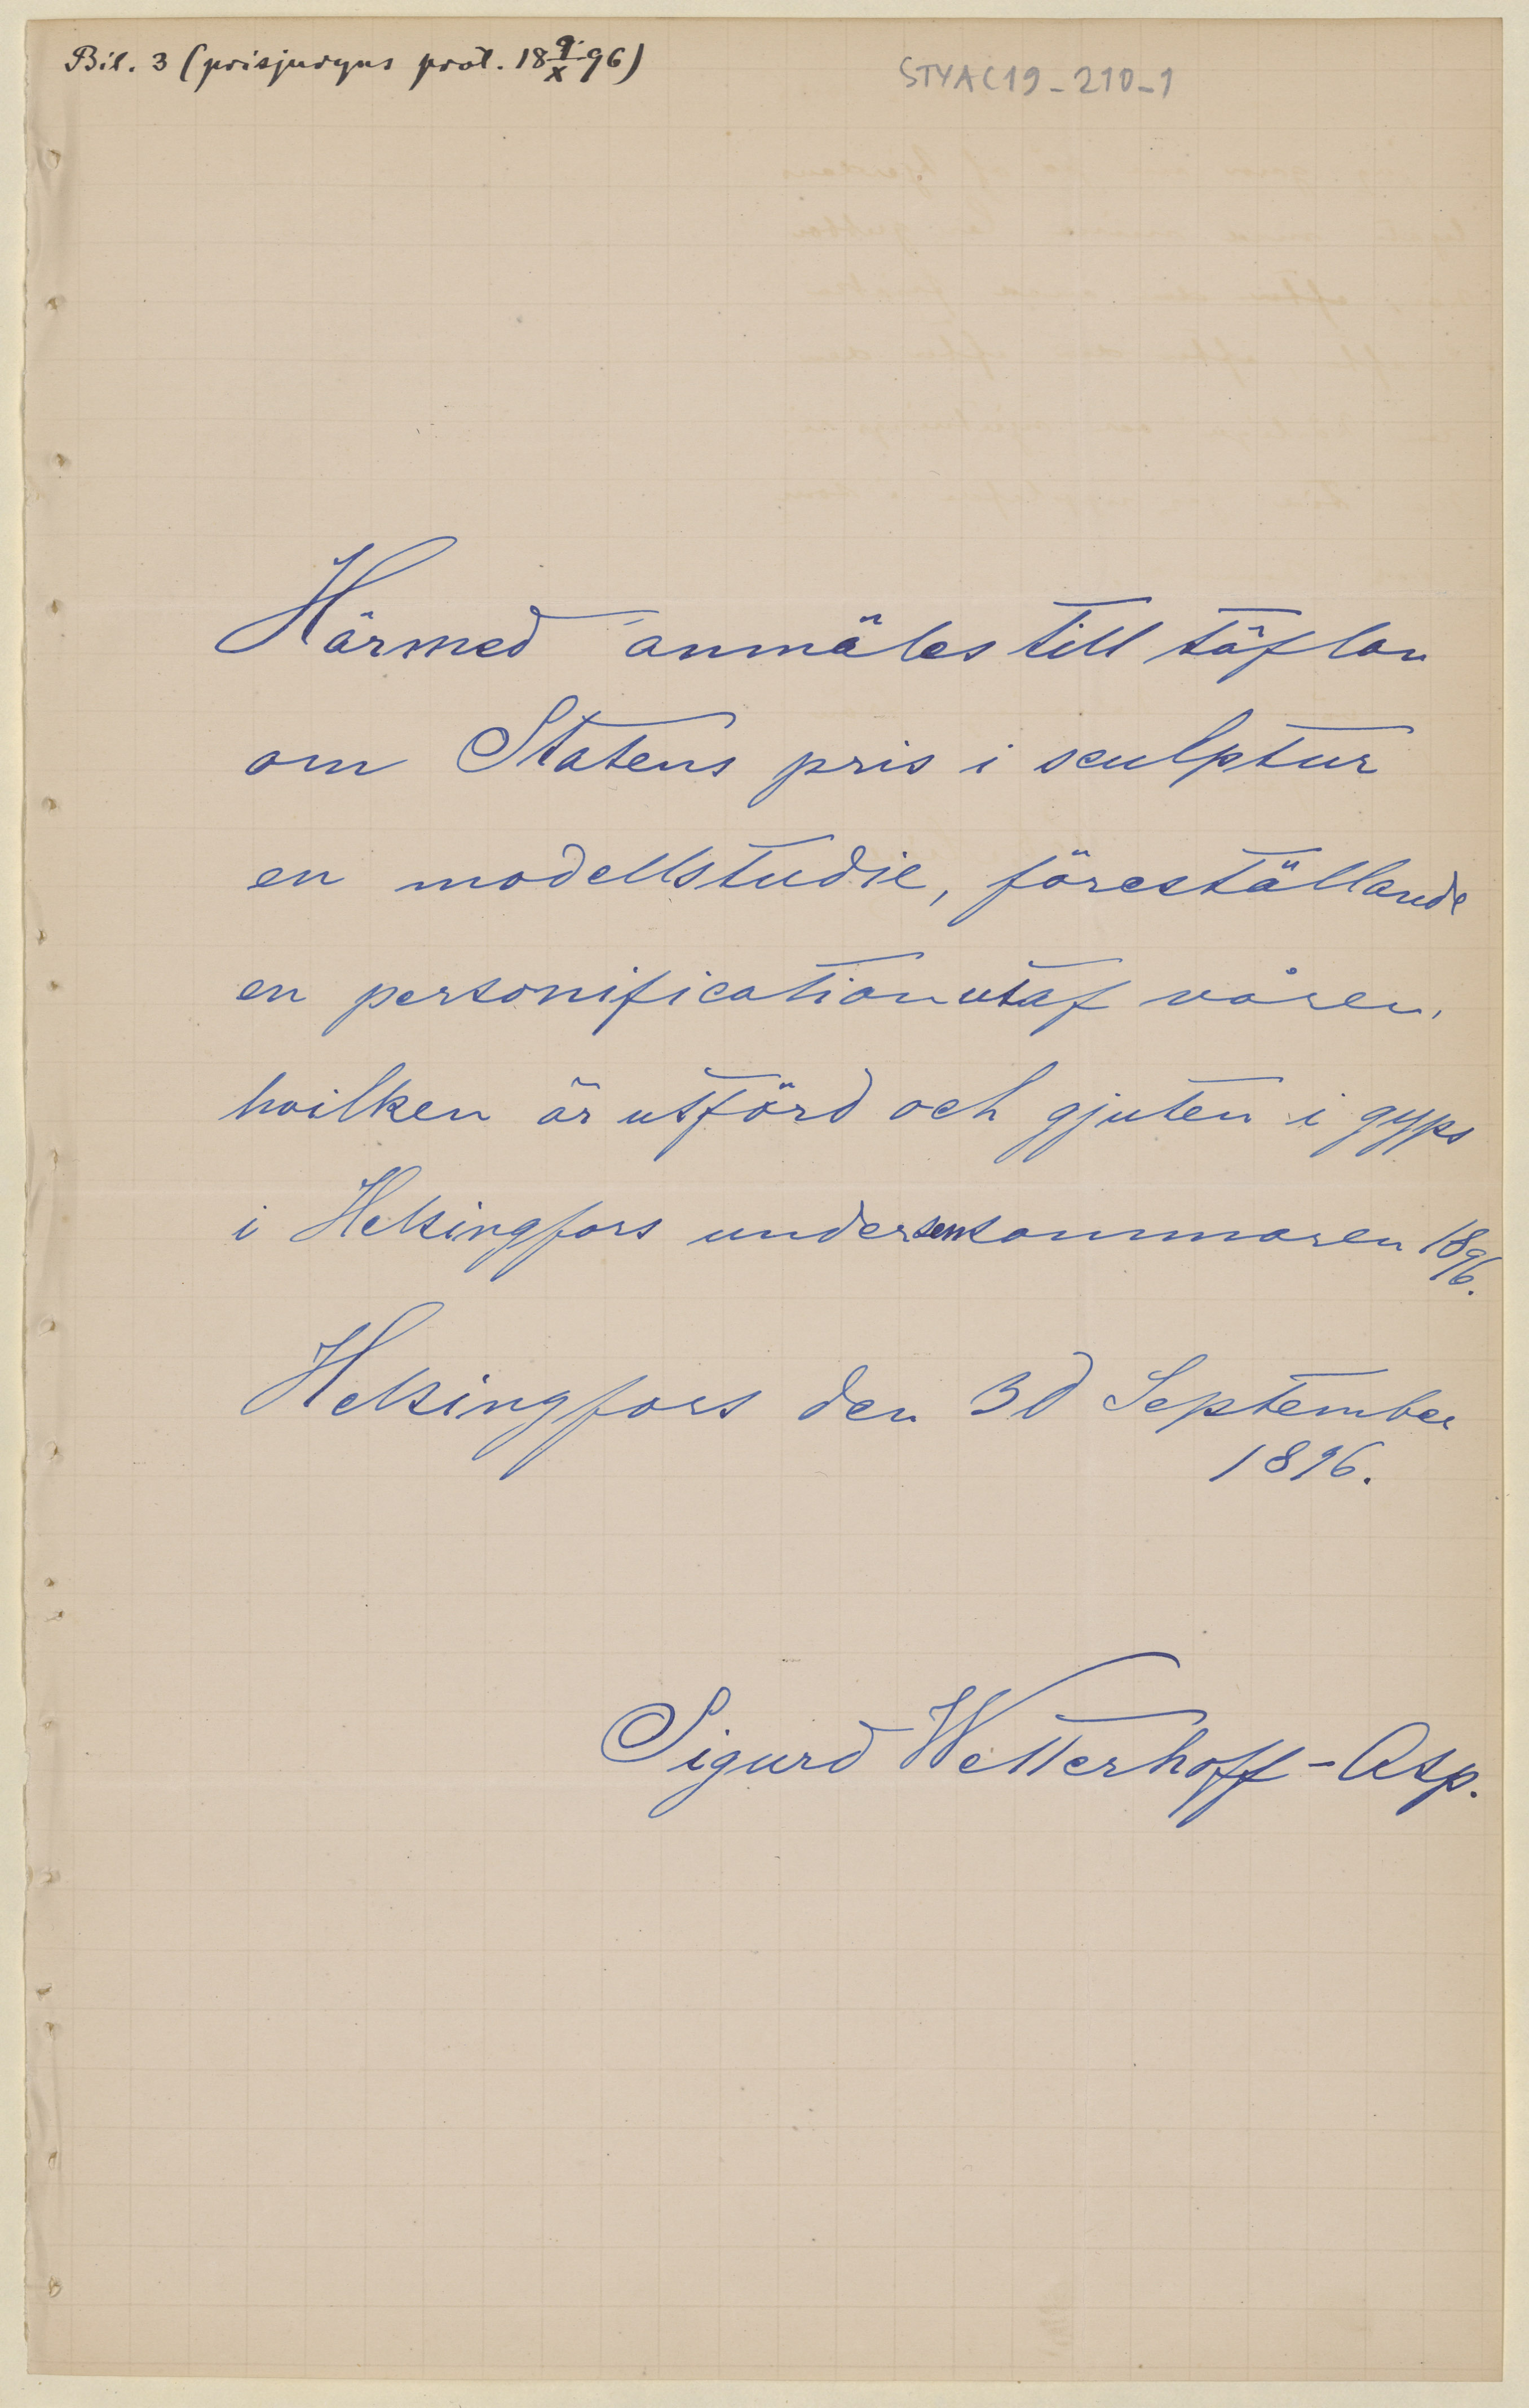 Bil. 3 (prisjuryns prot. 18 9/X 96)
STYAC19-210-1
Härmed anmäles till täflan
om Statens pris i sculptur
en modellstudie, föreställande
en personification utaf våren,
hvilken är utförd och gjuten i gyps
i Helsingfors under sensommaren 1896.
Helsingfors den 30 September
1896.
Sigurd Wetterhoff-Asp.